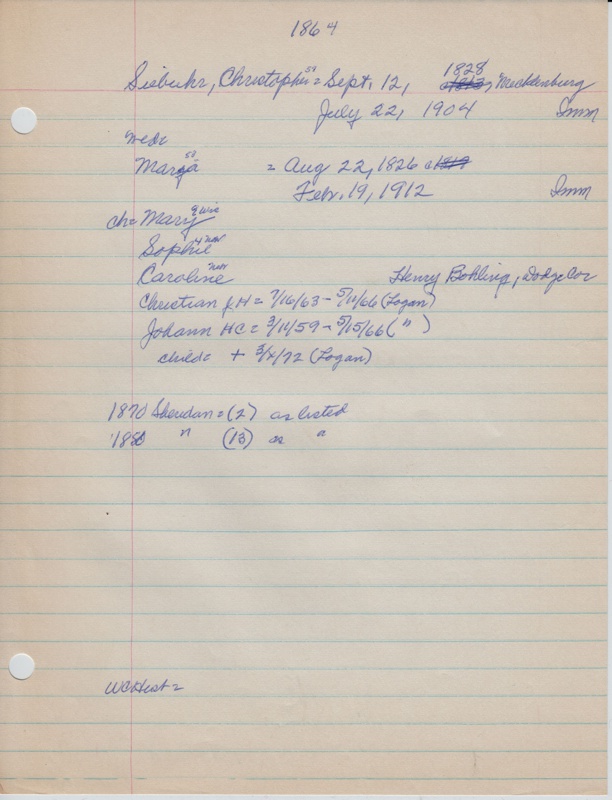 1864
Siebuhr, Christopher 59 = Sept. 12, 1828, Mecklenburg
July 22, 1904 Imm
wed:
Maria 53 = Aug 22, 1826
Febr. 19, 1912 Imm
ch= Mary 9 Wis
Sophie 4 Nebr
Caroline Nebr Henry Bohling, Dodge Co
Christian J.H = 7/16/63 - 5/11/66 (Logan)
Johann HC = 3/14/59 - 5/15/66 ( " )
child: + 3/x/72 (Logan)
1870 Sheridan = (2) as listed
1880 " (13) as "
WCHist =